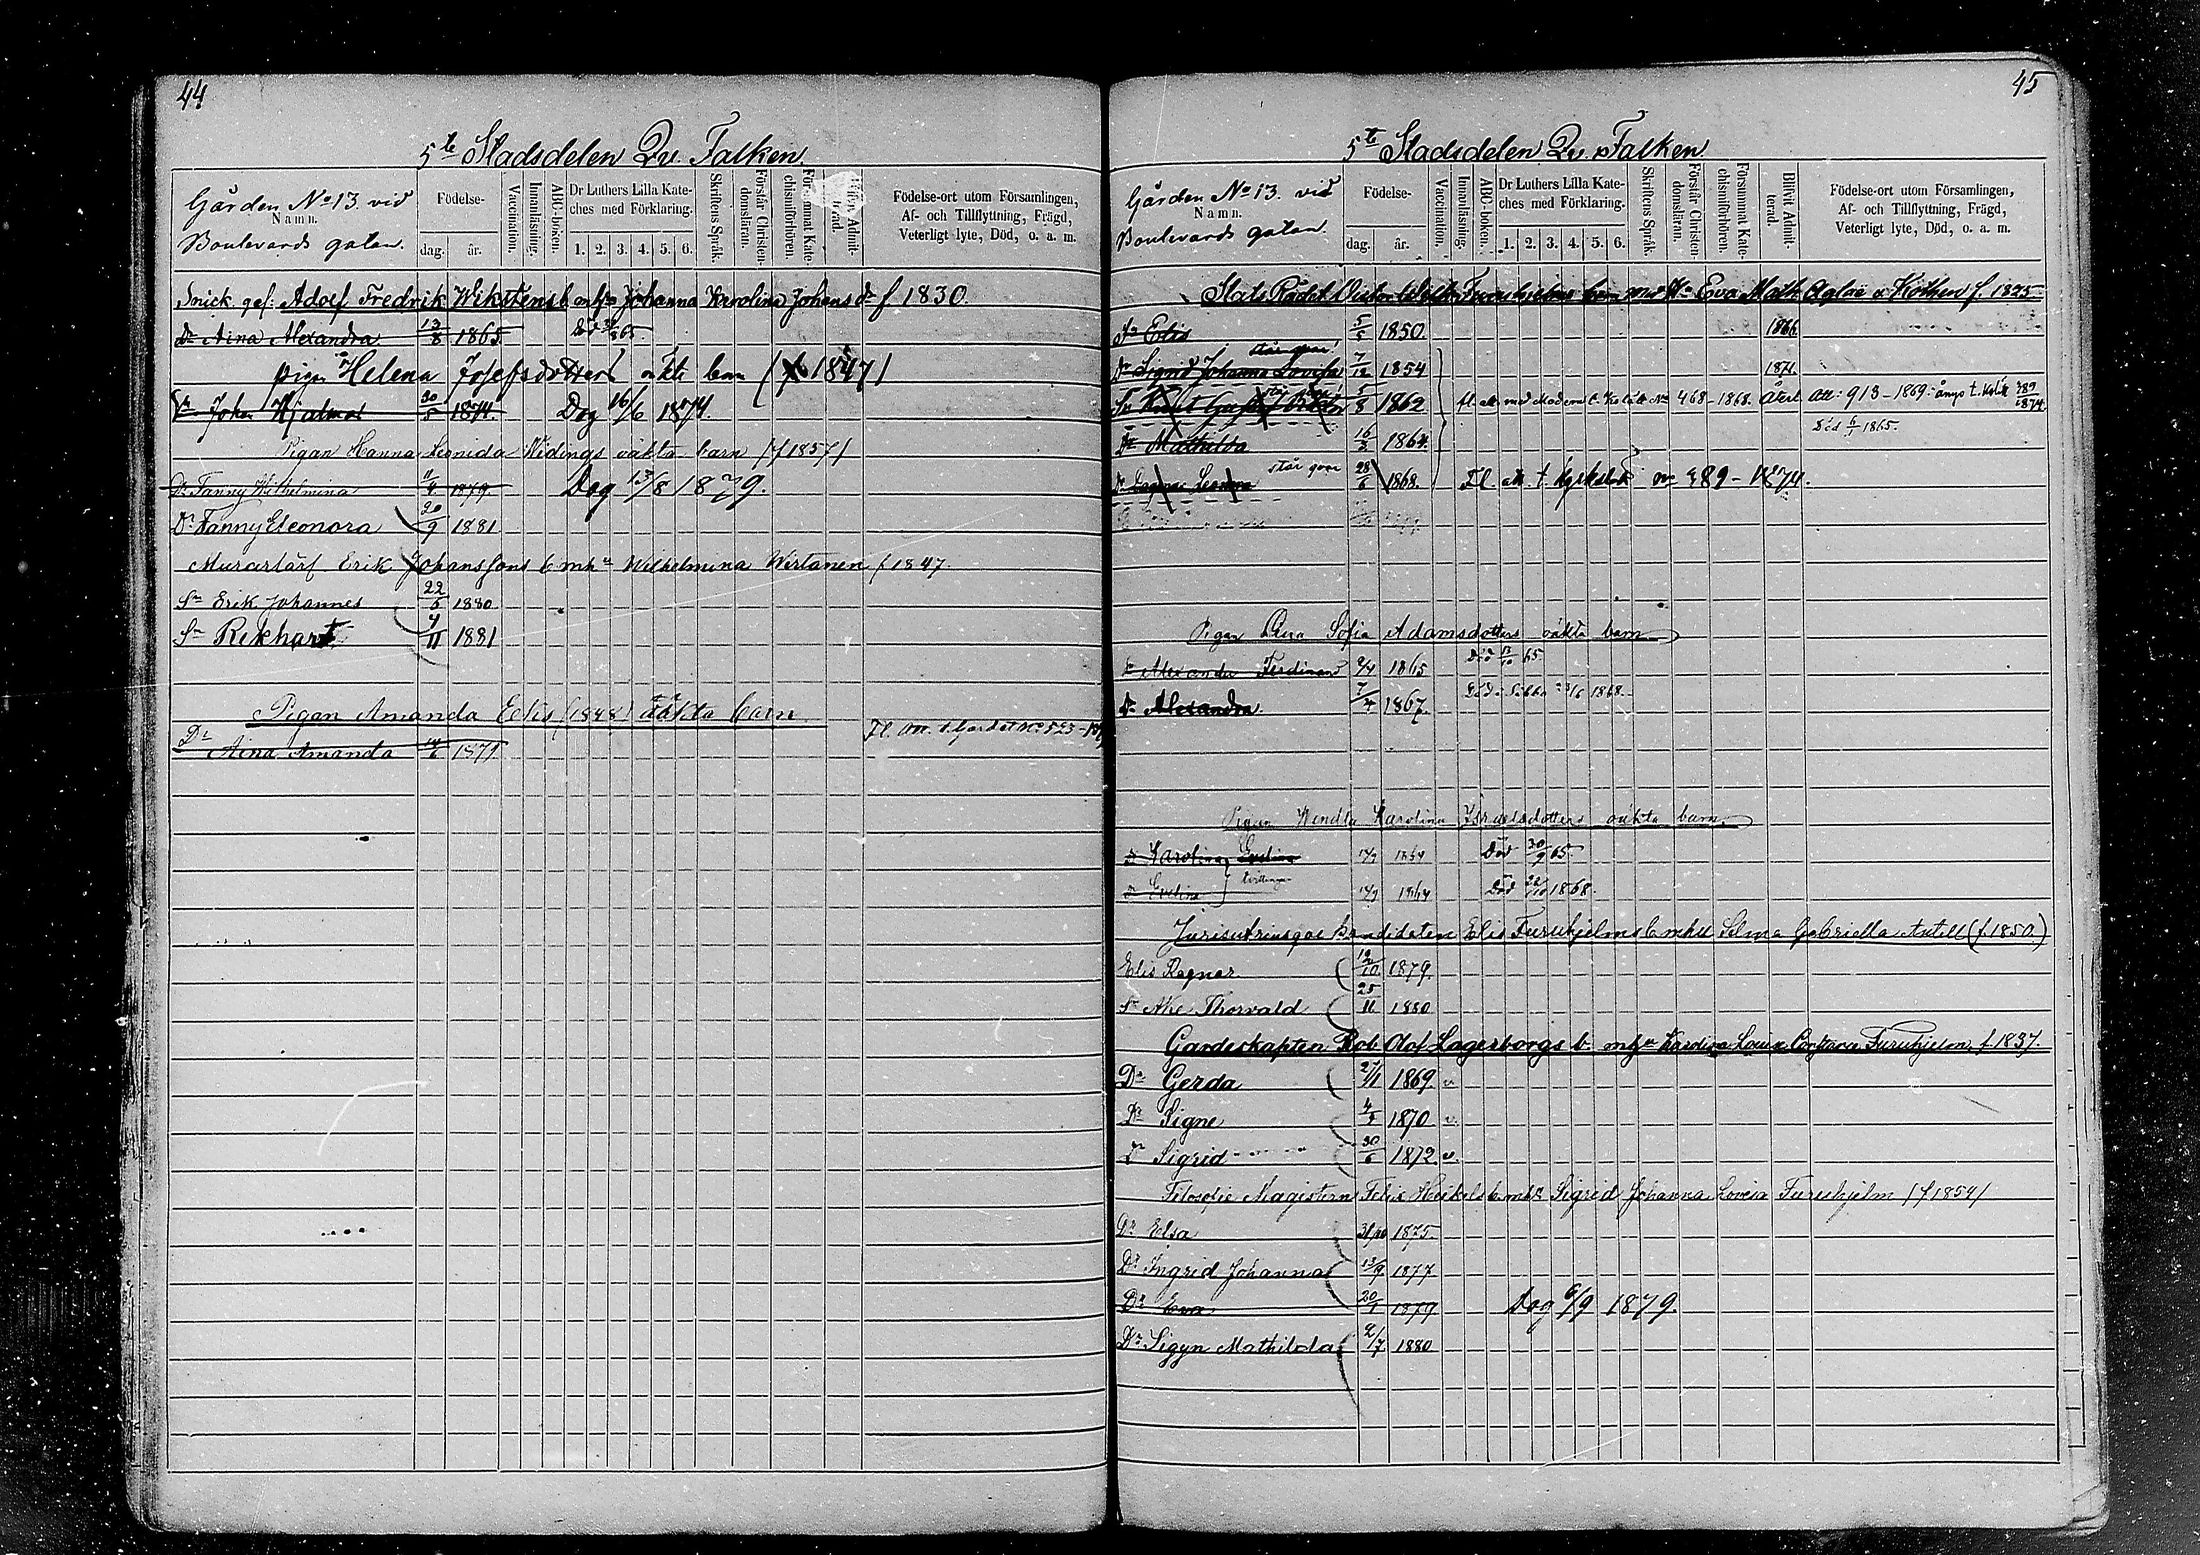 44
5te Stadsdelen Qv. Falken.
Gården No 13. vid
Namn.
Boulevards gatan.
Födelse-
dag. år.
Vaccination.
Innanläsning.
ABC-boken.
Dr Luthers Lilla Kate-
ches med Förklaring.
1. 2. 3. 4. 5. 6.
Skriftens Språk.
Förstår Christen-
domsläran.
Försummat Kate-
chismiförhören.
Admit-
terad.
Födelse-ort utom Församlingen,
Af- och Tillflyttning, Frägd,
Veterligt lyte, Död, o. a. m.
Snick. ges. Adolf Fredrik Wikstens b. m hu Johanna Karolina Johansdr f 1830.
Dr Aina Alexandra 12/8 1865 Död 865.
pigan Helena Josefsdotters oäkta barn (f 1847)
Sn Johan Hjalmar 20/5 1874. Dog 16/6 1874
Pigan Hanna Leonida Widings oäkta barn (f 1857)
Dr Fanny Wilhelmina 11/4 1879. Dog 13/8 1879.
Dr Fanny Eleonora 20/9 1881
Murarlärl. Erik Johanssons b mhu Wilhelmina Wirtanen f 1847
Sn Erik Johannes 22/5 1880
Sn Rikhart 4/11 1881
Pigan Amanda Eklis (1848) oäkta barn
Dr Aina Amanda 14/6 1871 Fl. att. t. Gardet No 523-
45
5te Stadsdelen Qv. Falken.
Gården No 13. vid
Namn.
Boulevards gatan.
Födelse-
dag. år.
Vaccination.
Innanläsning.
ABC-boken.
Dr Luthers Lilla Kate-
ches med Förklaring.
1. 2. 3. 4. 5. 6.
Skriftens Språk.
Förstår Christen-
domsläran.
Försummat Kate-
chismiförhören.
Blifvit Admit-
terad.
Födelse-ort utom Församlingen,
Af- och Tillflyttning, Frägd,
Veterligt lyte, Död, o. a. m.
Stats Rådet Furuhjelms barn med Hu Eva Math. Aglaë v Kothen f. 1825
Sn Elis 5/5 1850. 1866
står qvar!
Dr Sigrid Johanna Lovisa 7/12 1854 1871.
Sn Knut Gustaf 5/8 1862 fl. att. med Modren t. No 468-1868. Återk. Att: 913-1869. ånyo t. 389/1874
Dr Mathilda 16/3 1864. Död 6/1 1865.
står qvar
Dr Dagmar Leonna 28/6 1868. Fl. att. t. No 389-1874.
Pigan Sofia Adamsdotters oäkta barn
Sn Alexander Ferdinand 2/4 1865 Död 13/10 65.
Dr Alexandra 7/4 1867. Död i Sibbo 1868.
Pigan Wendla Karolina Israelsdotters oäkta barn.
Dr Karolina Evelina 1864 Död 30/9 65.
tvillingar
Dr Evelina 1864 Död 22/10 1868.
Jurisutriusque kandidaten Elis Furuhjelms b mhu Selma Gabriella Antell (f 1850.)
Elis Ragnar 12/10 1879.
Sn Åke Thorvald 25/11 1880
Gardeskapten Rob. Olof Lagerborgs b. mhu Karolina Lovisa Constance Furuhjelm, f. 1837.
Dr Gerda 27/11 1869. v.
Dr Signe 1870 v.
Dr Sigrid 30/6 1872. v.
Filosofie Magistern Felix Heikels b. mhu Sigrid Johanna Lovisa Furuhjelm (f 1854)
Dr Elsa 31/10 1875.
Dr Ingrid Johanna 13/9 1877
Dr Eva 20/1 1879 Dog 6/9 1879.
Dr Sigyn Mathilda 2/7 1880